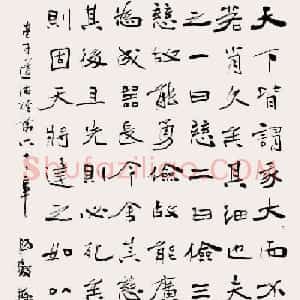 天下皆謂我大而不
若肖久矣其細也夫
之一曰慈二曰儉三
慈故能勇儉故能廣
為成器長今舍其慈
其後且先則必死矣
則固天將建之如以
老子道德經第六十七章
Shufaziliao.COM